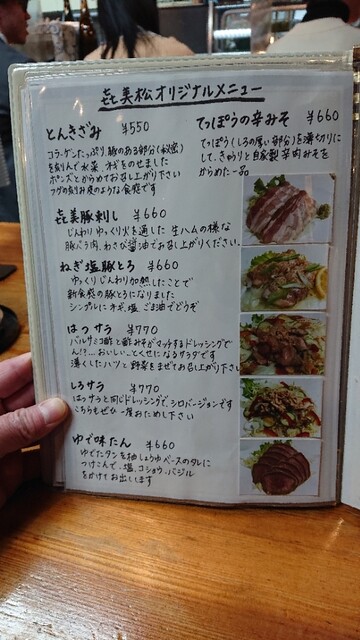 㐂美松オリジナルメニュー
とんきざみ ¥550
コラーゲンたっぷり、豚のある部分(秘密)
を刻んで水菜、ネギをのせました
ポンズとからめてお召し上がり下さい
フグの刻み皮のような食感です
てっぽうの辛みそ ¥660
てっぽう(しろの厚い部分)を薄切りに
して、きゅうりと自家製辛肉みそを
からめた一品
㐂美豚刺し ¥660
じんわりゆっくり火を通した生ハムの様な
豚バラ肉、わさび醤油でお召し上がりください。
ねぎ塩豚とろ ¥660
ゆっくりじんわり加熱したことで
新食感の豚とろになりました
シンプルにネギ、塩、ごま油でどうぞ
はつサラ ¥770
バルサミコ酢と鮓みそがマッチするドレッシングで
ん!?...おいしい...とくせになるサラダです
薄くしたハツと野菜をまぜてお召し上がり下さい
しろサラ ¥770
はつサラと同じドレッシングで、シロバージョンです
こちらもぜひ一度おためし下さい
ゆで味たん ¥660
ゆでたタンを柚しょうゆベースのタレに
つけこんで、塩、コショウ、バジル
をかけてお出しします